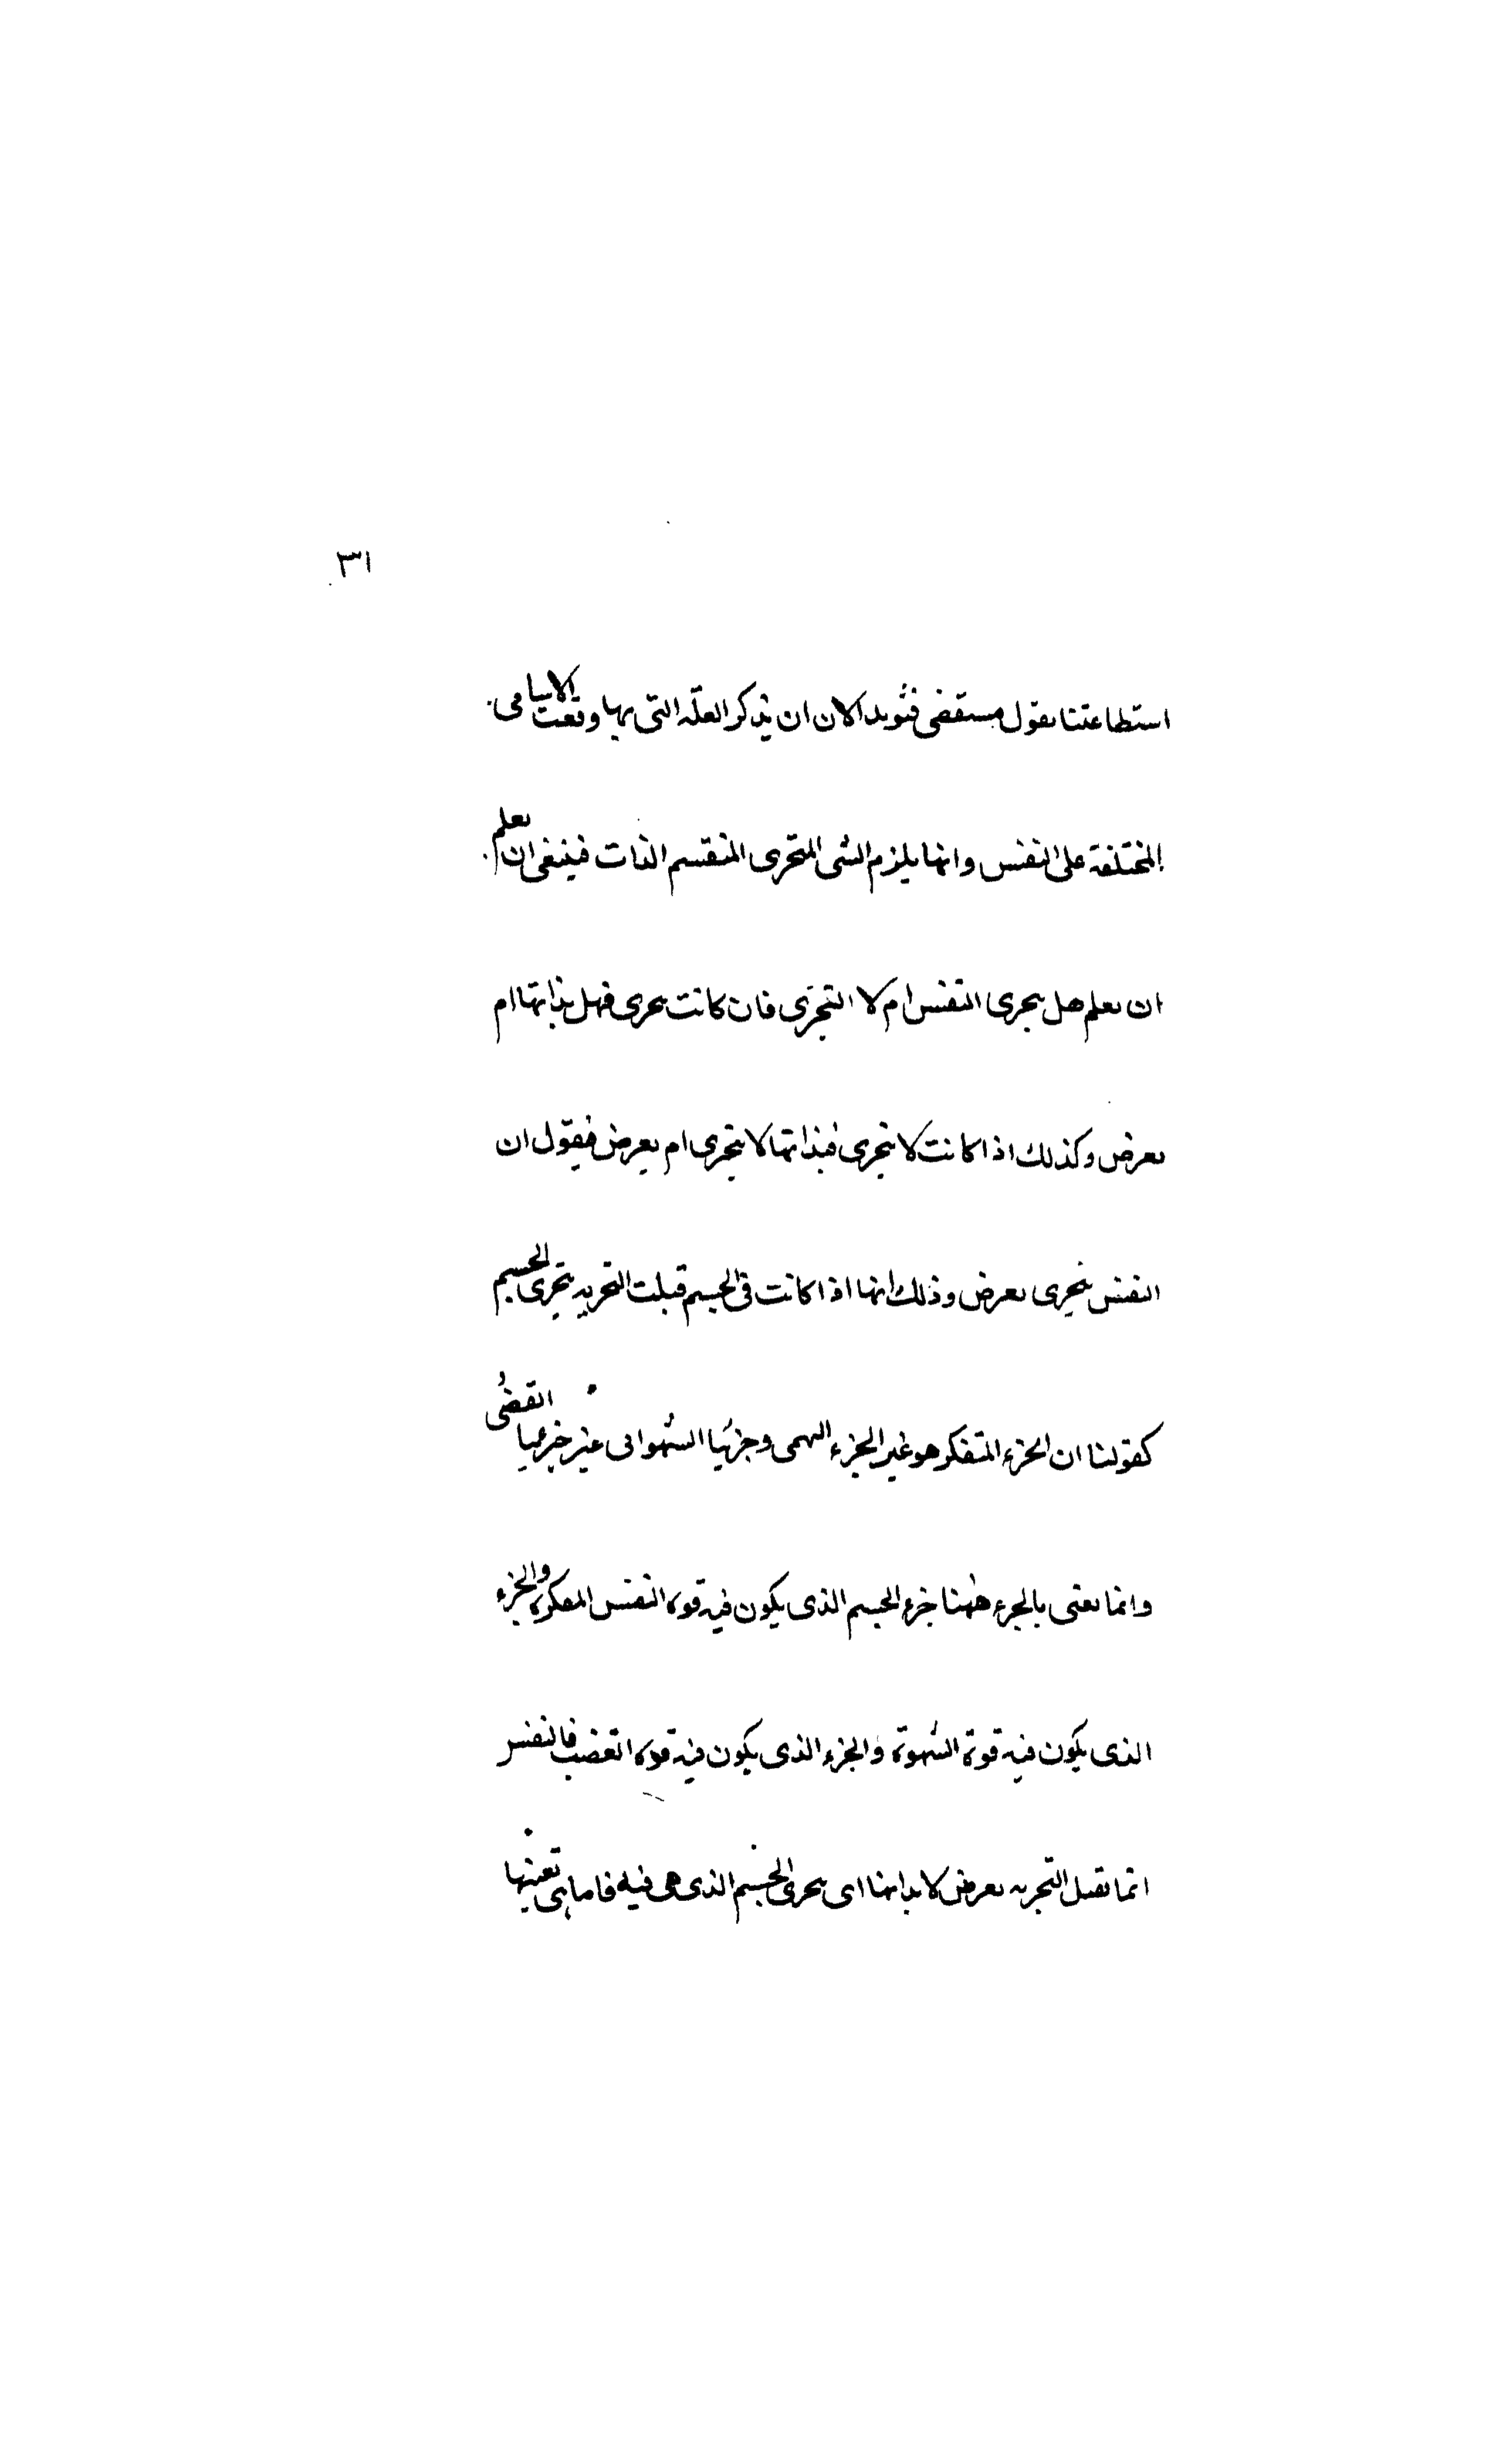 ٣١
استطاعتنا بقول مستقضى فنريد الان ان نذكر العلّة التى بها وقعت الاسامى
المختلفة على النفس وانها يلزم الشى المتجزى المنقسم الذات فينبغى ان نعلم
ان نعلم هل يتجزى النفس ام لا التجزى فان كانت يتجزى فهل بذاتها ام
بعرض وكذلك اذا كانت لا يتجزى فبذاتها لا يتجزى ام بعرض فيقول ان
النفس يتجزى بعرض وذلك انها اذا كانت فى الجسم قبلت التجزيه بتجزى الجسم
كقولنا ان الجزء المتفكر هو غير الجزء البهمى وجزئها الشهوانى غير جزءها
وانما نعنى بالجزء ههنا جزء الجسم الذى يكون فيه قوة النفس المفكرة والجزء
الذى يكون فيه قوة الشهوة والجزء الذى يكون فيه قوة الغضب فالنفس
انما تقبل التجزيه بعرض لا بذاتها اى بتجزى الجسم الذى هى فيه فاما هى بعينها